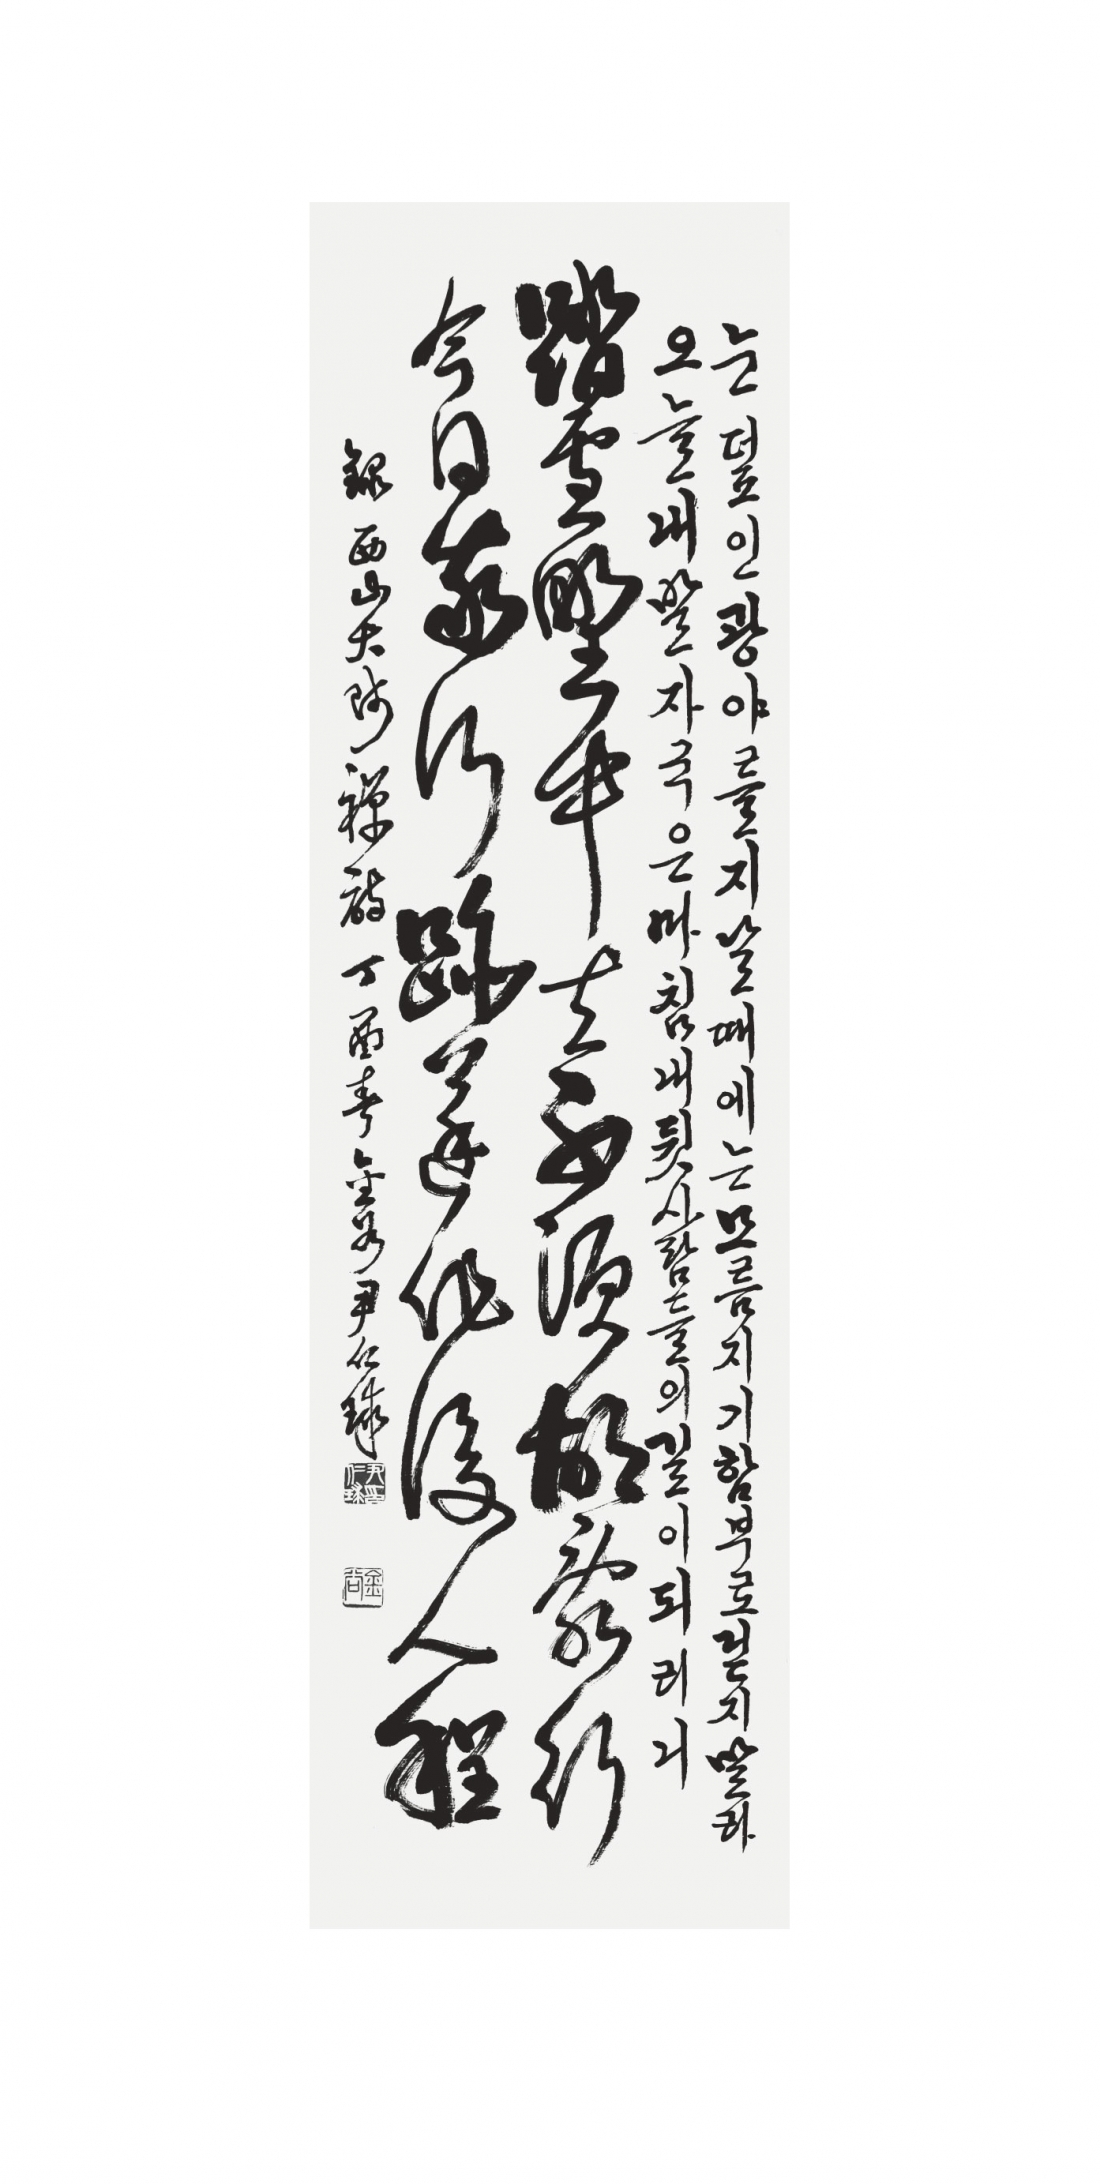 눈 덮인 광야를 지날 때에는 모름지기 함부로 걷지 말라
오늘 내 발자국은 마침내 뒷사람들의 길이 되리니
踏雪野中去不須胡亂行
今日我行跡遂作後人程
錄西山大師禪詩 丁酉春 金谷 尹仁球